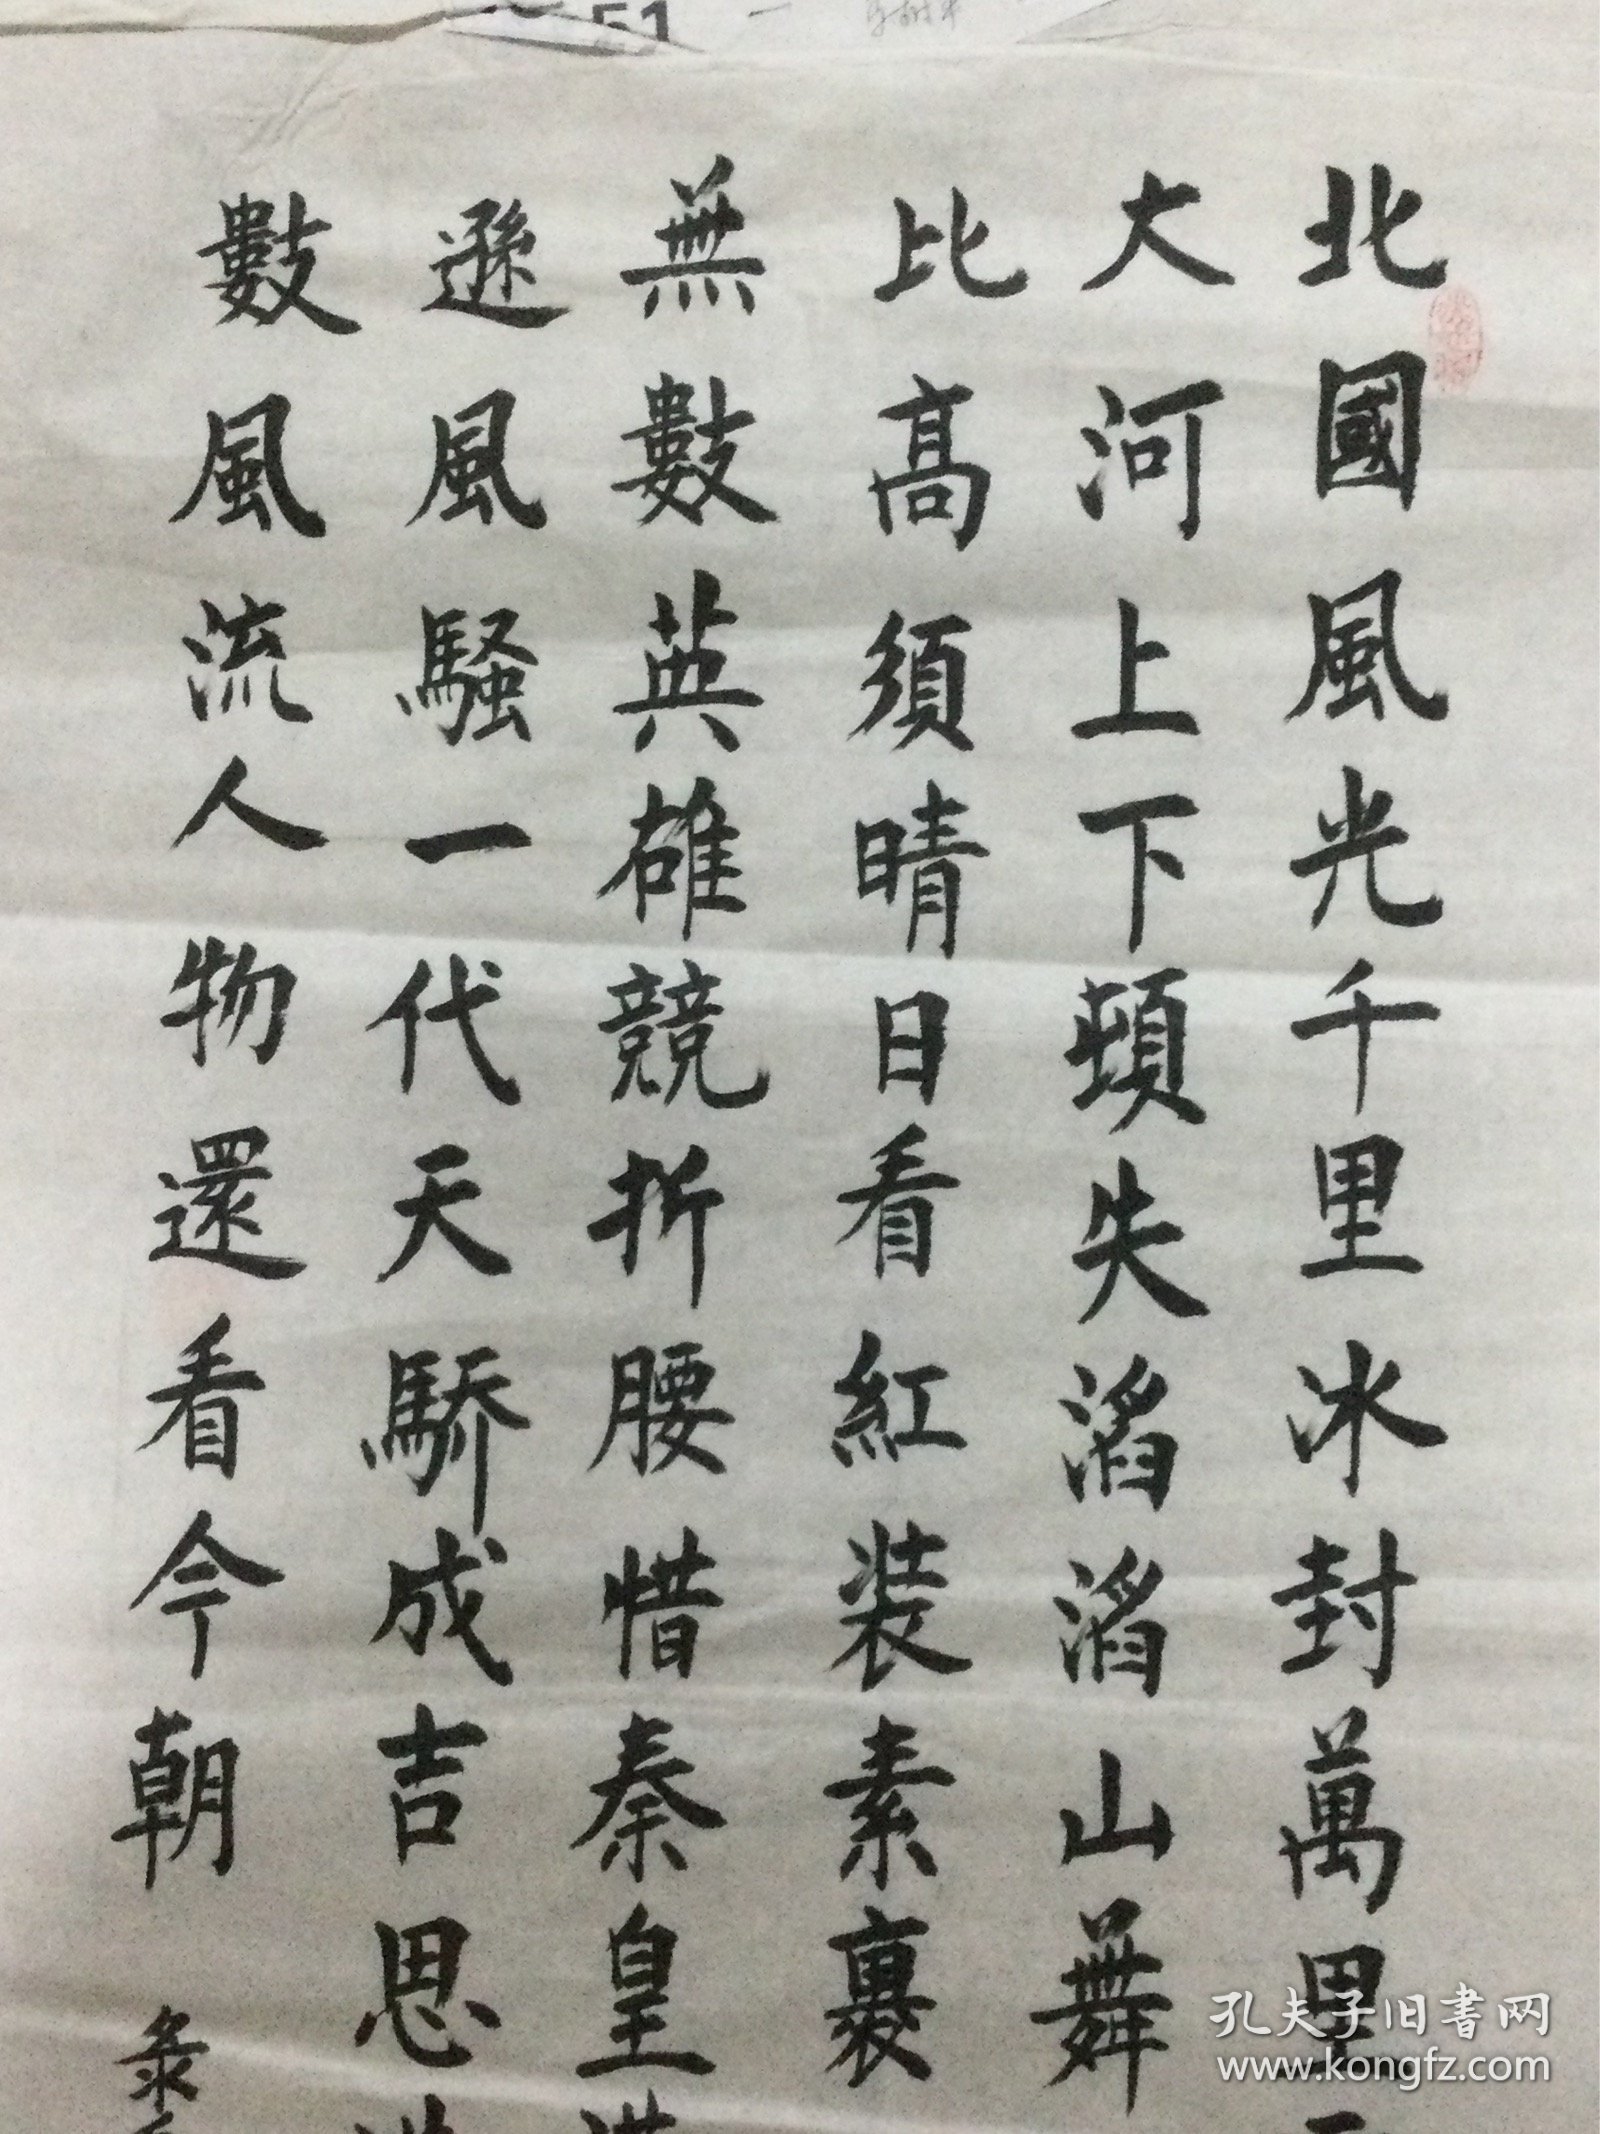 北國風光千里冰封萬里
大河上下頓失滔滔山舞
比高須晴日看紅裝素裹
無數英雄競折腰惜秦皇漢
遜風騷一代天驕成吉思
數風流人物還看今朝
录
51
孔夫子旧書网
www.kongfz.com